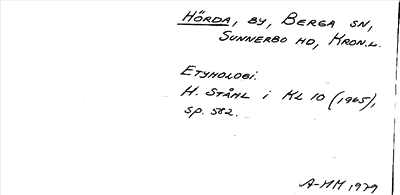 HÖRDA, BY, BERGA SN,
SUNNERBO HD, KRON.L.
ETYMOLOGI.
H. STÅHL i KL 10 (1965),
sp. 582.
A-MM 1979